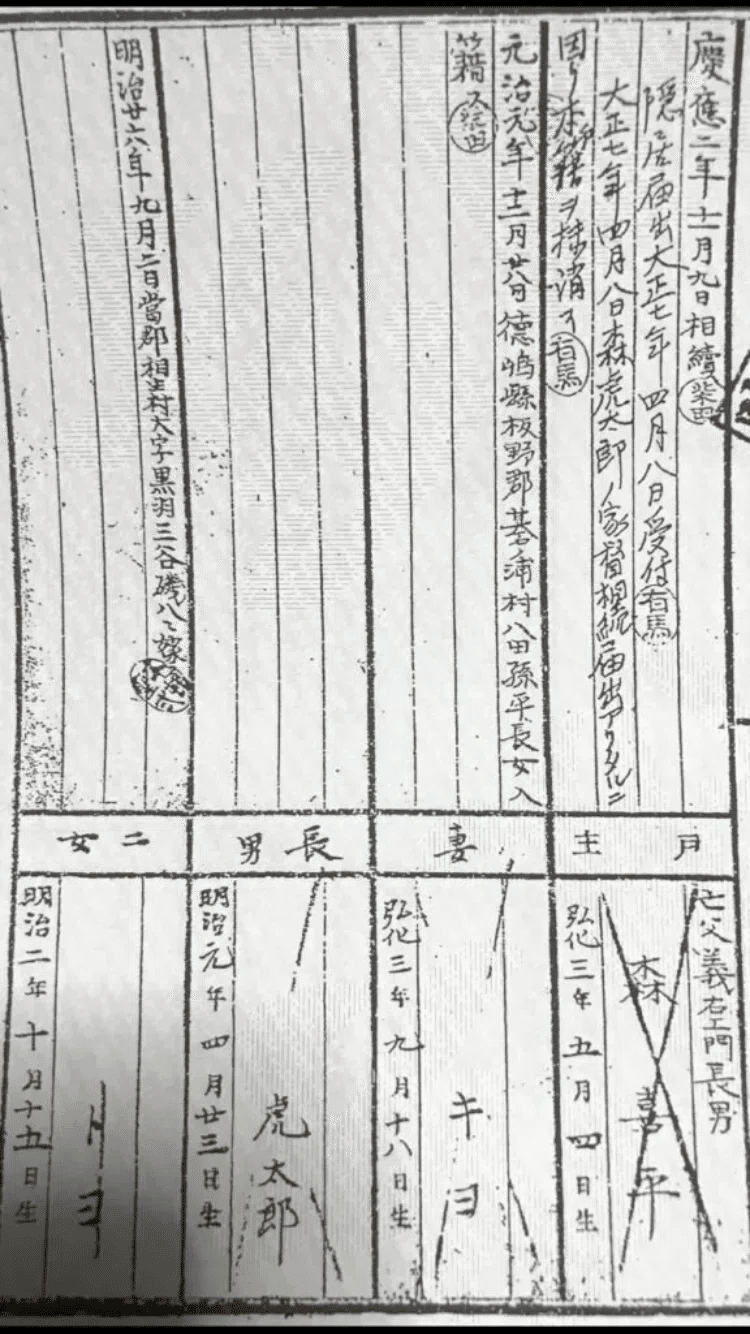 慶應二年十一月九日相續
柴田
隱居届出大正七年四月八日受付
有馬
大正七年四月八日森虎太郎ノ家督相続届出アリタルニ
因リ本籍ヲ抹消ス
有馬
元治元年十二月廿八日德島縣板野郡
村八田孫平長女入
籍ス
柴田
明治廿六年九月二日當郡相生村大字黒羽三谷磯八ヘ嫁
戸主
妻
長男
二女
亡父義右エ門長男
森喜平
弘化三年五月四日生
キヨ
弘化三年九月十八日生
虎太郎
明治元年四月廿三日生
トヨ
明治二年十月十五日生